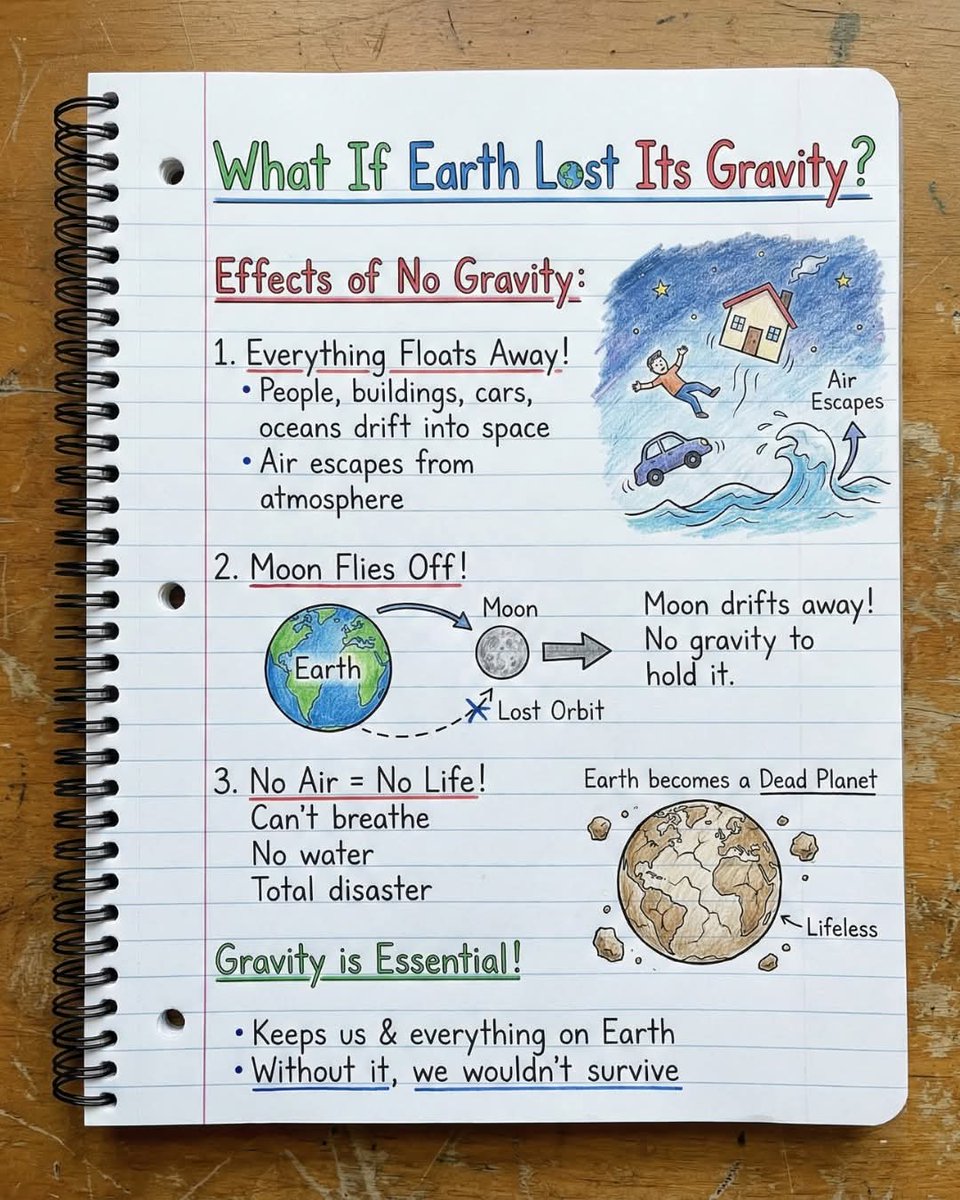 What If Earth Lost Its Gravity?
Effects of No Gravity:
1. Everything Floats Away!
• People, buildings, cars,
oceans drift into space
• Air escapes from
atmosphere
Air
Escapes
2. Moon Flies Off!
Earth
Moon
Lost Orbit
Moon drifts away!
No gravity to
hold it.
3. No Air = No Life!
Can't breathe
No water
Total disaster
Earth becomes a Dead Planet
Lifeless
Gravity is Essential!
• Keeps us & everything on Earth
• Without it, we wouldn't survive